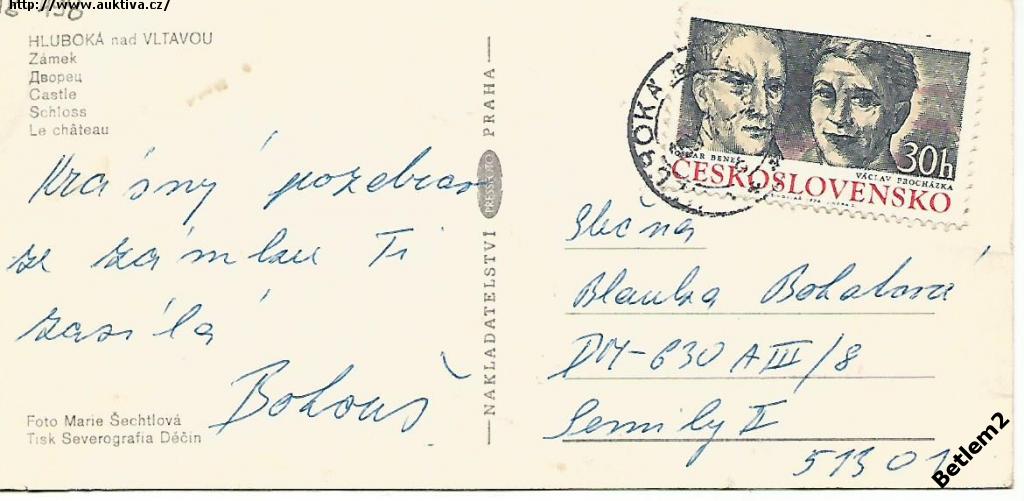 http://www.auktiva.cz/
HLUBOKÁ nad VLTAVOU
Zámek
Дворец
Castle
Schloss
Le château
Krásný pozdrav
ze zámku Ti
zasílá
Bohouš
Foto Marie Šechtlová
Tisk Severografia Děčín
NAKLADATELSTVÍ PRESSFOTO PRAHA
BENEŠ
VÁCLAV PROCHÁZKA
30h
ČESKOSLOVENSKO
Slečna
Blanka Bohatová
DM-630 A III/8
Semily II
513 01
Betlem2